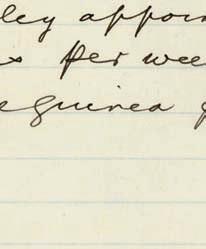 ley appoin
per wee
guinea